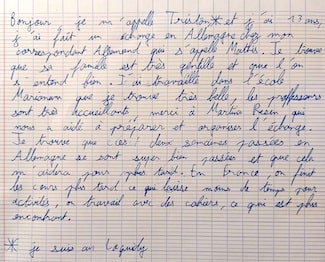 Bonjour je m'appelle Tristan* et j'ai 13 ans,
j'ai fait un échange en Allemagne chez mon
correspondant Allemand qui s'appelle Mathis. Je trouve
que sa famille est très gentille et que l'on
s'entend bien. J'ai travaillé dans l'école
que je trouve très belle, les professeurs
sont très accueillants, merci à Martina qui
nous a aidé à préparer et organiser l'échange.
Je trouve que ces deux semaines passées en
Allemagne se sont super bien passées et que cela
m'aidera pour plus tard. En France, on finit
les cours plus tard ce qui laisse moins de temps pour
activités, on travail avec des cahiers, ce que est plus
encombrant.
* je suis au